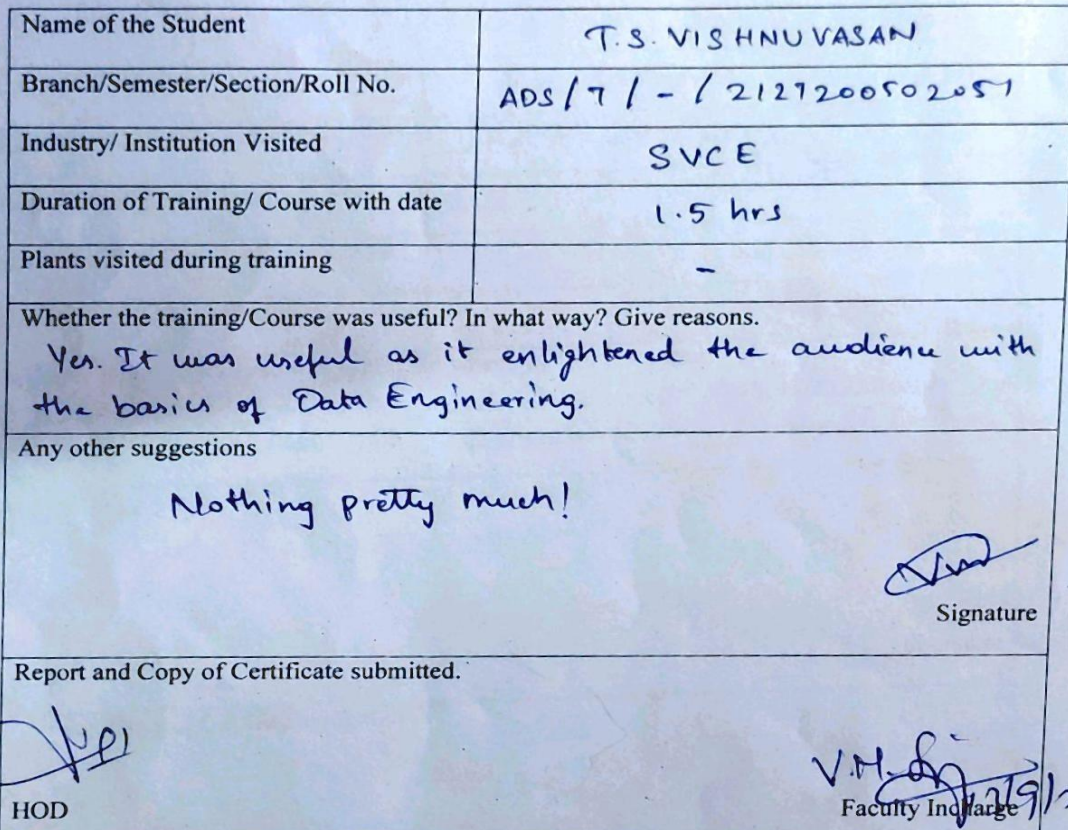 Name of the Student T.S. VISHNUVASAN
Branch/Semester/Section/Roll No. ADS / 7 / - / 2127200502051
Industry/ Institution Visited SVCE
Duration of Training/ Course with date 1.5 hrs
Plants visited during training -
Whether the training/Course was useful? In what way? Give reasons.
Yes. It was useful as it enlightened the audience with
the basics of Data Engineering.
Any other suggestions
Nothing pretty much!
Signature
Report and Copy of Certificate submitted.
V.M.
HOD Faculty Incharge